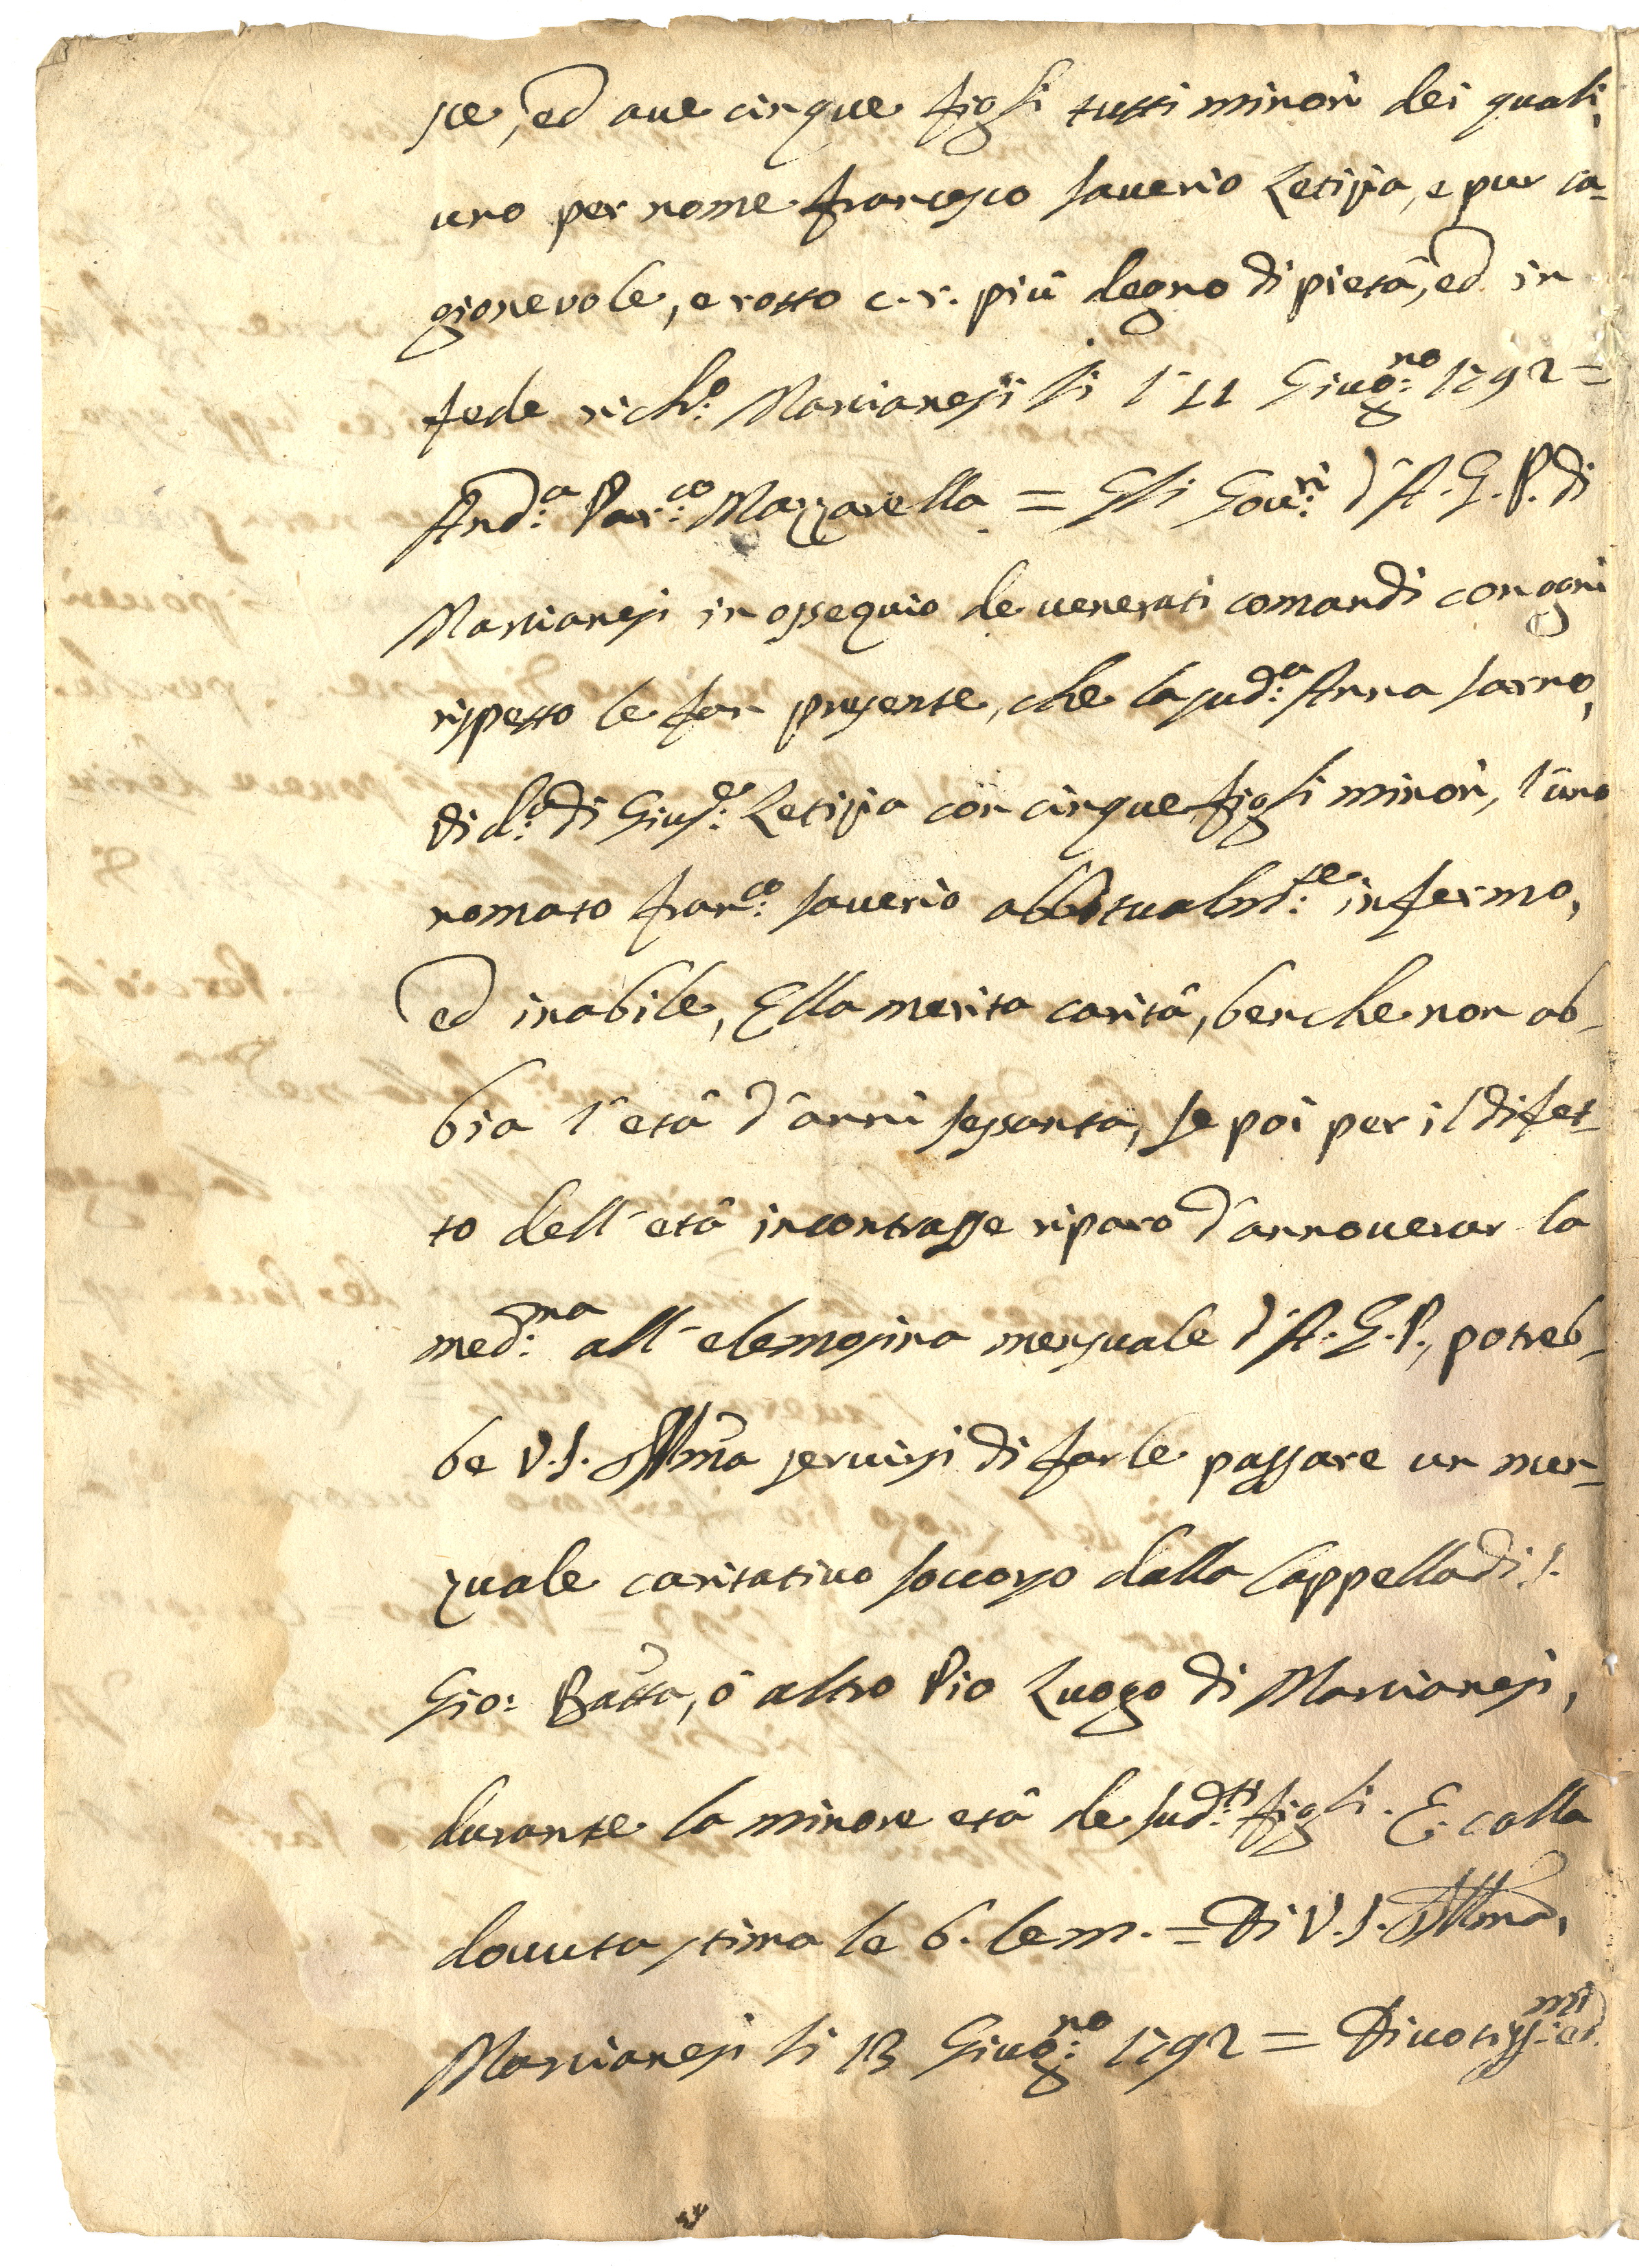 se, ed ave cinque figli tutti minori dei quali,
uno per nome Francesco Saverio Letizia, e pur ca-
gionevole, e rotto c. r. più degno di pietà, ed in
fede rich:o Marcianesi li 11 Giug:no 1792 =
And:a Par:co Mazzarella = Gli Gov:ri d'A. G. P. di
Marcianesi in ossequio de venerati comandi con ogni
rispetto le fan presente, che la sud:a Anna Sarno,
di Gius:e Letizia con cinque figli minori, l'uno
nomato Fran:co Saverio abbitualm:te infermo,
ed inabile, Ella merita carità, benche non ab-
bia l'età d'anni sessanta, se poi per il difet-
to dell'età incontrasse riparo d'annoverar la
med:ma all'elemosina mensuale d'A. G. P., potreb-
be V. S. Illma servirsi di farle passare un men-
zuale caritativo soccorso dalla Cappella di S.
Gio: Batta, ò altro Pio Luogo di Marcianesi,
durante la minore età de sud:ti figli. E colla
dovuta stima le b. le m. = Di V. S. Illma,
Marcianesi li 13 Giug:no 1792 = Divotiss:mi ed